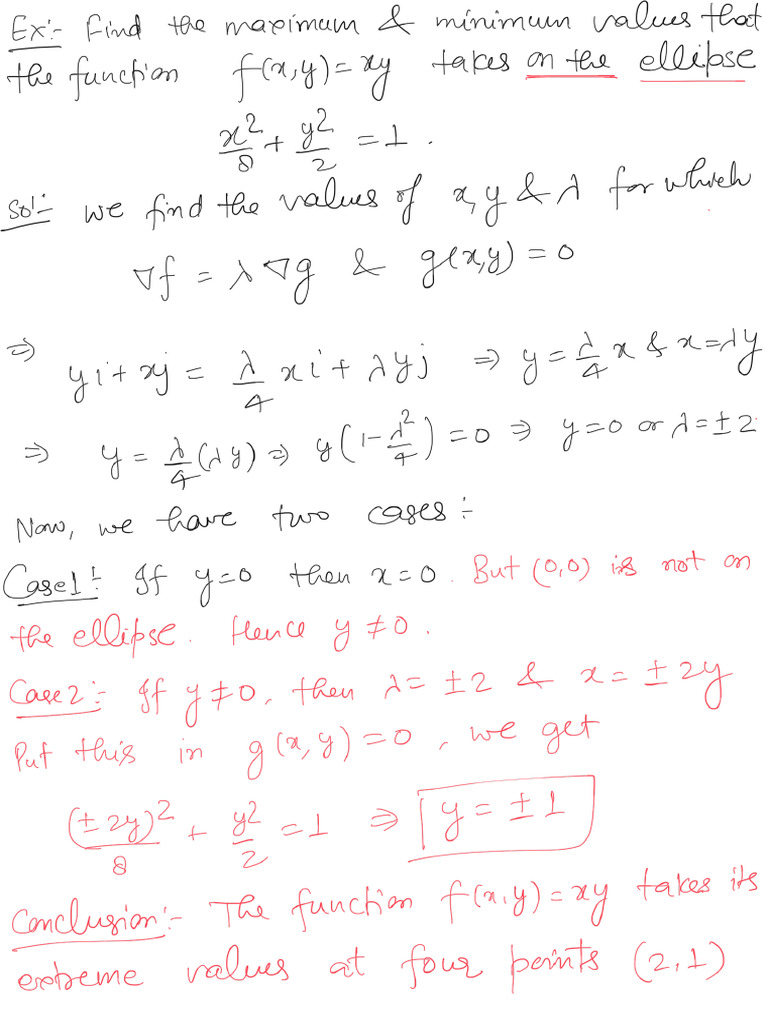 Ex:- Find the maximum & minimum values that
the function f(x,y) = xy takes on the ellipse
x²/8 + y²/2 = 1.
Sol:- we find the values of x, y & λ for which
∇f = λ∇g & g(x,y) = 0
⇒ yi + xj = λ/4 xi + λyj ⇒ y = λ/4 x & x = λy
⇒ y = λ/4 (λy) ⇒ y(1 - λ²/4) = 0 ⇒ y=0 or λ = ±2
Now, we have two cases:-
Case1:- If y=0 then x=0. But (0,0) is not on
the ellipse. Hence y≠0.
Case2:- If y≠0, then λ = ±2 & x = ±2y
Put this in g(x,y) = 0, we get
(±2y)²/8 + y²/2 = 1 ⇒ y = ±1
Conclusion:- The function f(x,y) = xy takes its
extreme values at four points (2,1)